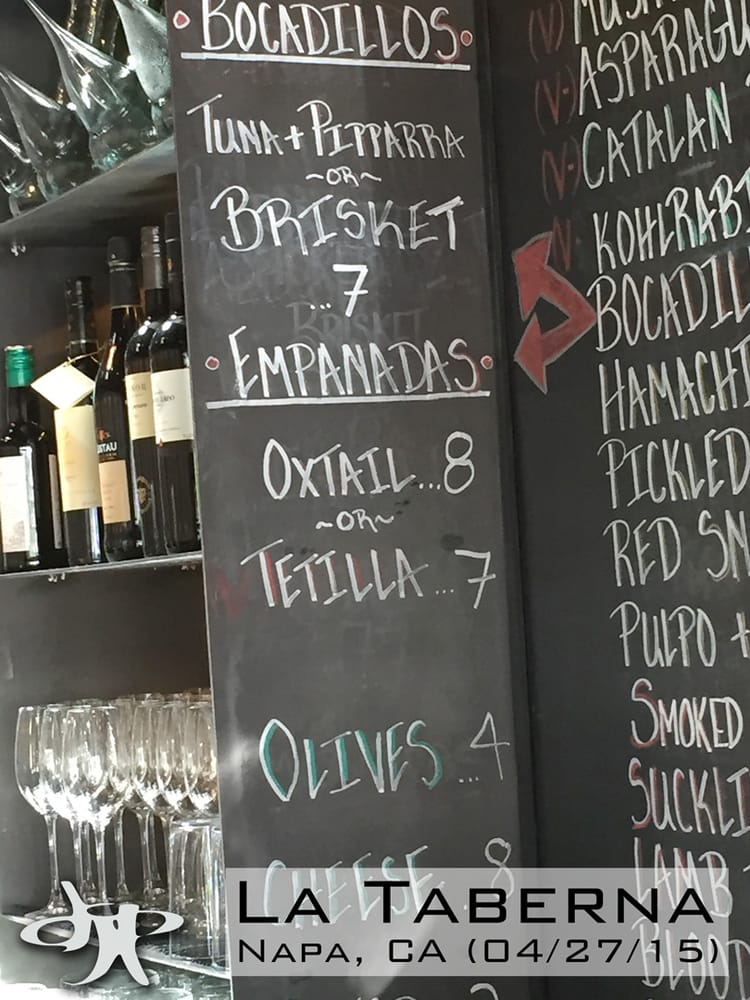 BOCADILLOS
TUNA + PIPPARRA
~OR~
BRISKET
...7
EMPANADAS
OXTAIL...8
~OR~
V TETILLA...7
OLIVES...4
CHEESE..8
(V)
(V·) ASPARAGU
(V·) CATALAN
V· KOHLRAB
BOCADIL
HAMACHI
PICKLED
RED SN
PULPO +
SMOKED
SUCKLI
LAMB
BLOOD
LA TABERNA
NAPA, CA (04/27/15)